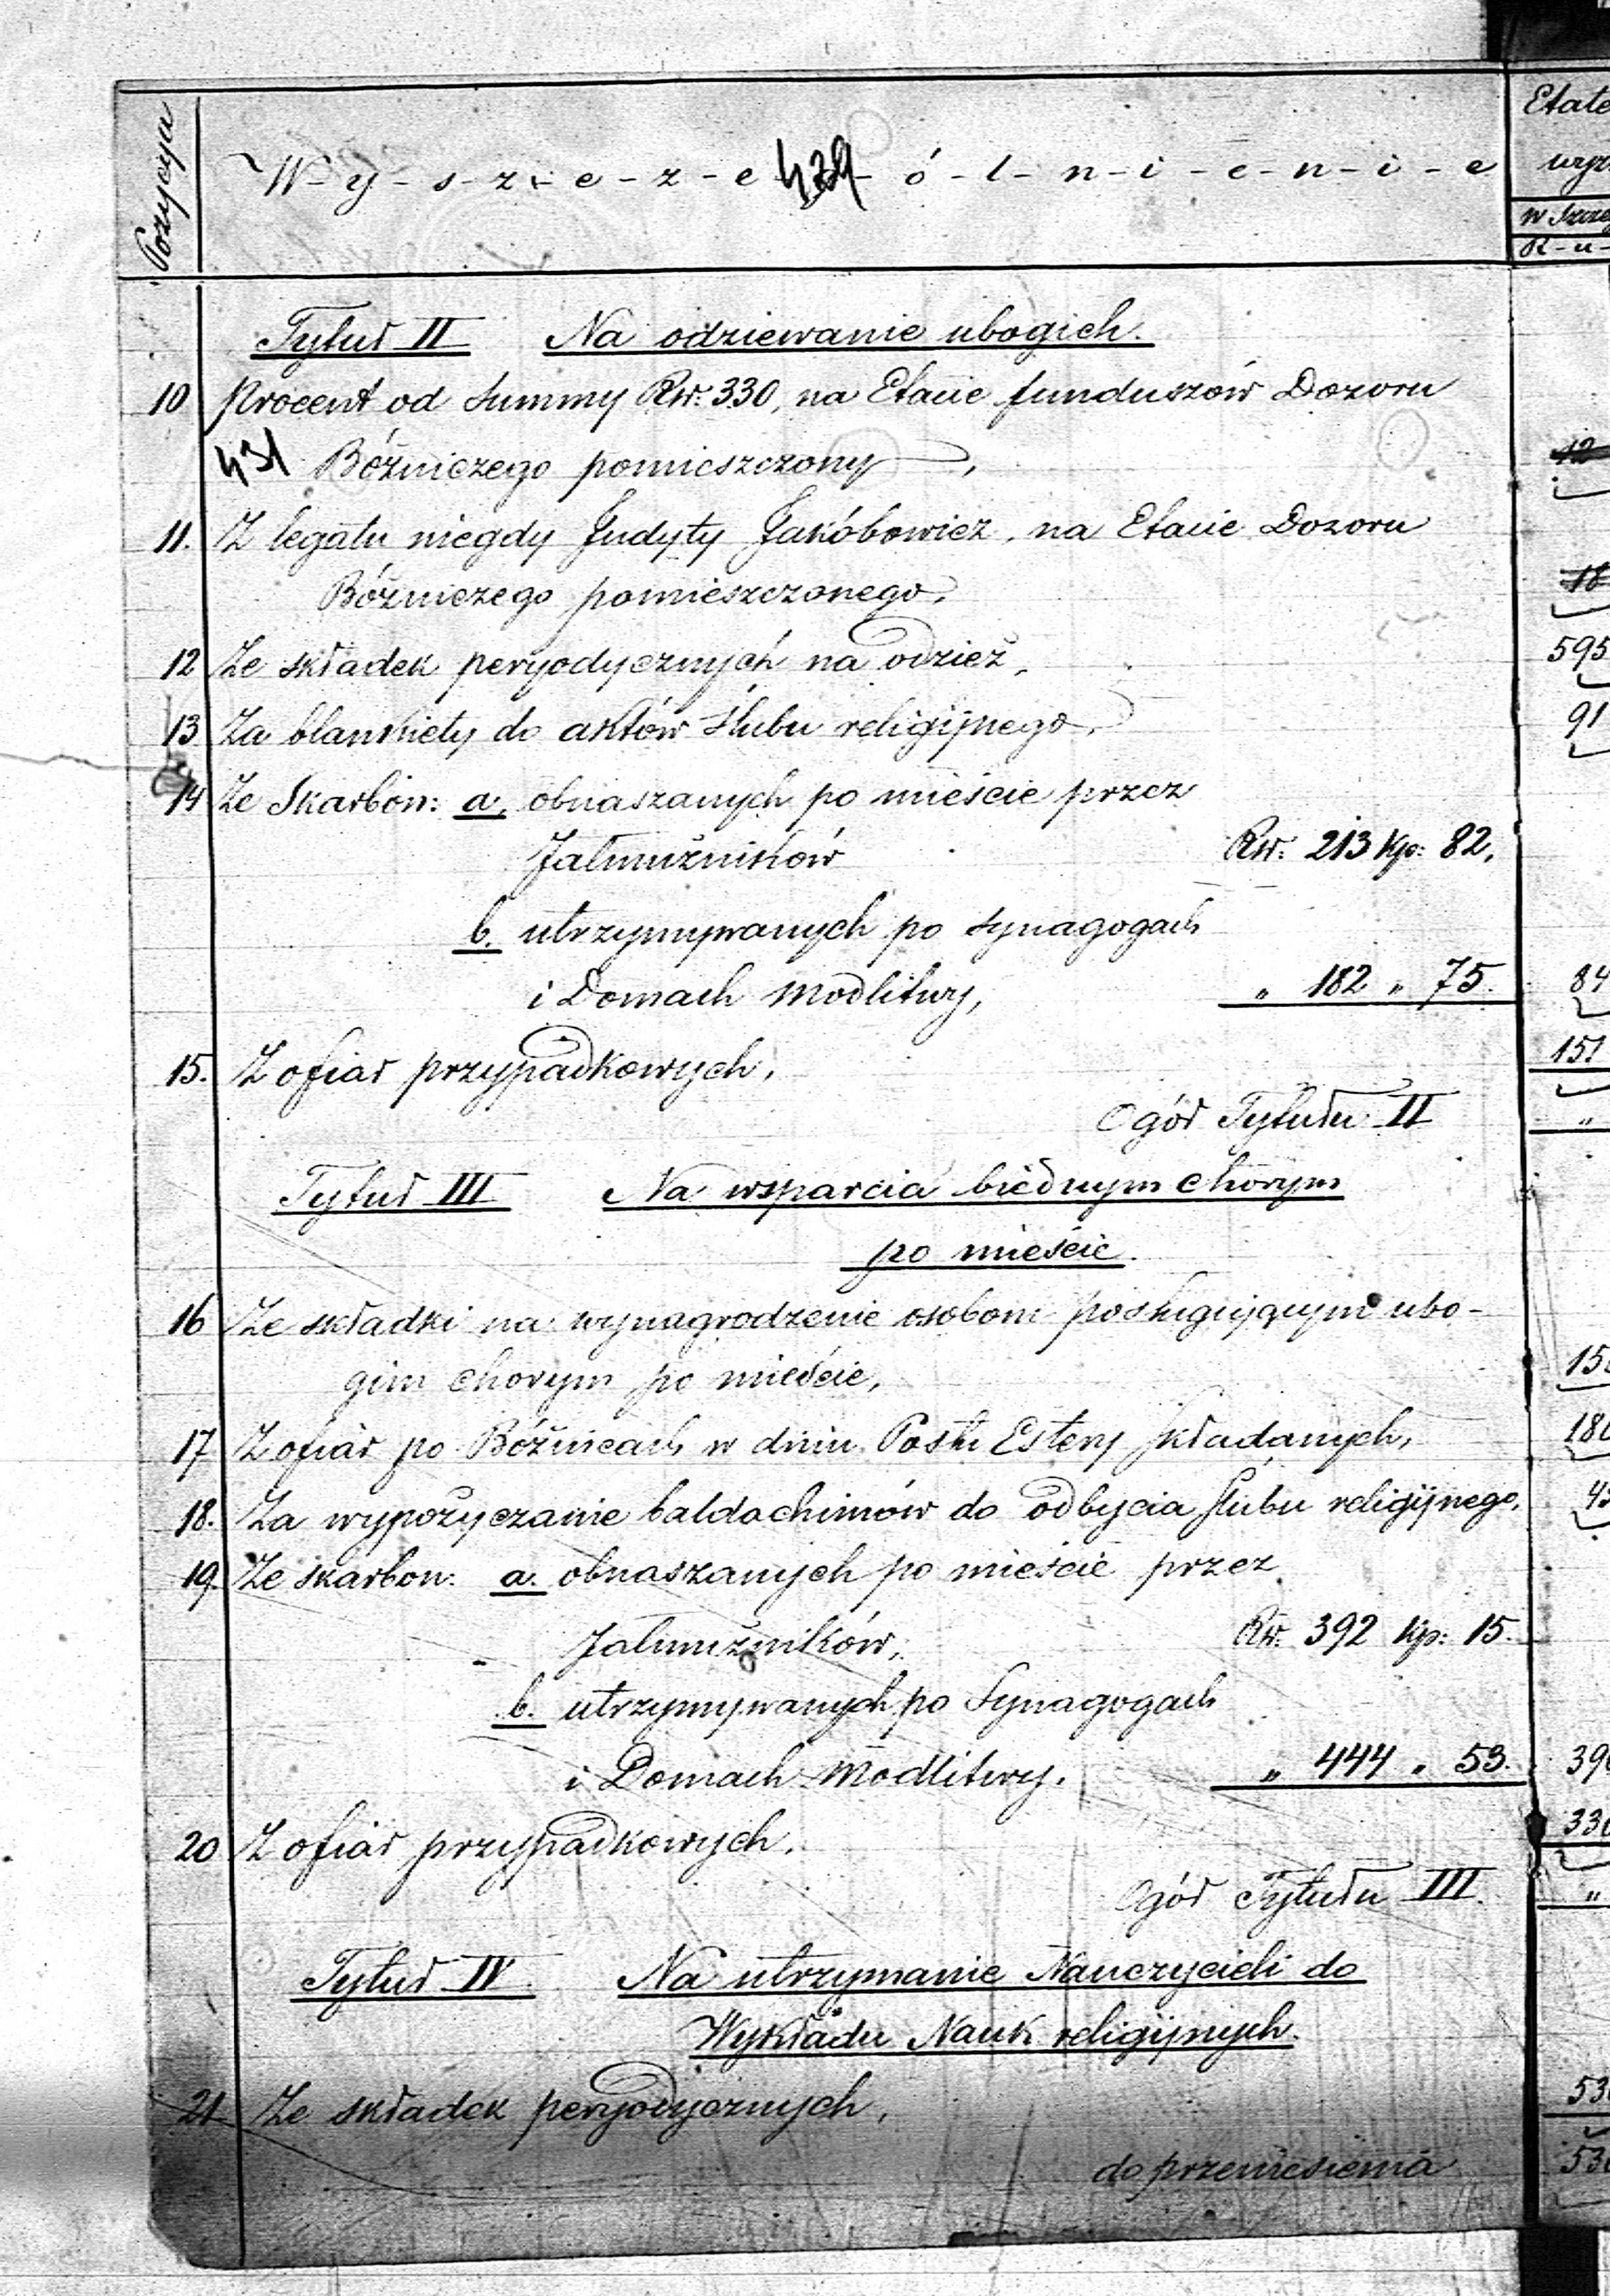 Pozycya
W-y-s-z-c-z-e-g-ó-l-n-i-e-n-i-e
Etate
w Szcze
R-u-
Tytuł II Na odziewanie ubogich.
10 Procent od Summy Rsr. 330, na Etacie funduszów Dozoru
431 Bóżniczego pomieszczony,
12
11. Z legatu niegdy Judyty Jakóbowicz, na Etacie Dozoru
18
Bóżniczego pomieszczonego,
12 Ze składek peryodycznych na odzież, 595
13 Za blankiety do aktów ślubu religijnego, 91
14 Ze Skarbon: a, obnaszanych po mieście przez
Jałmużników Rsr: 213 Kp: 82,
b. utrzymywanych po Synagogach
i Domach Modlitwy, " 182 " 75. 84
15. Z ofiar przypadkowych, 151
Ogół Tytułu II "
Tytuł III Na wsparcia biednym chorym
po mieście.
16 Ze składki na wynagrodzenie osobom posługującym ubo-
gim chorym po mieście, 15
17 Z ofiar po Bóżnicach w dniu Postu Estery składanych, 18
18. Za wypożyczanie baldachimów do odbycia ślubu religijnego, 4
19. Ze skarbon: a. obnaszanych po mieście przez
Jałmużników, Rsr. 392 Kp: 15.
b. utrzymywanych po Synagogach
i Domach Modlitwy. " 444 " 53. 39
20 Z ofiar przypadkowych. 33
Ogół Tytułu III. "
Tytuł IV Na utrzymanie Nauczycieli do
Wykładu Nauk religijnych.
21 Ze składek peryodycznych, 53
do przeniesienia 53